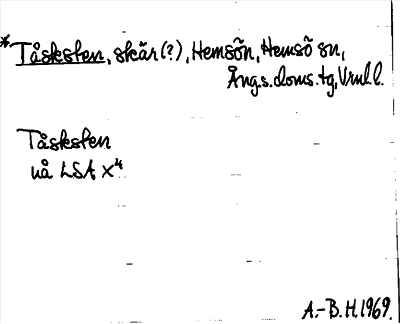 *Tåsksten, skär(?), Hemsön, Hemsö sn,
Ång.s.doms.tg, Vrnl.l.
Tåsksten
uå LSA X 4
A.-B.H. 1969.